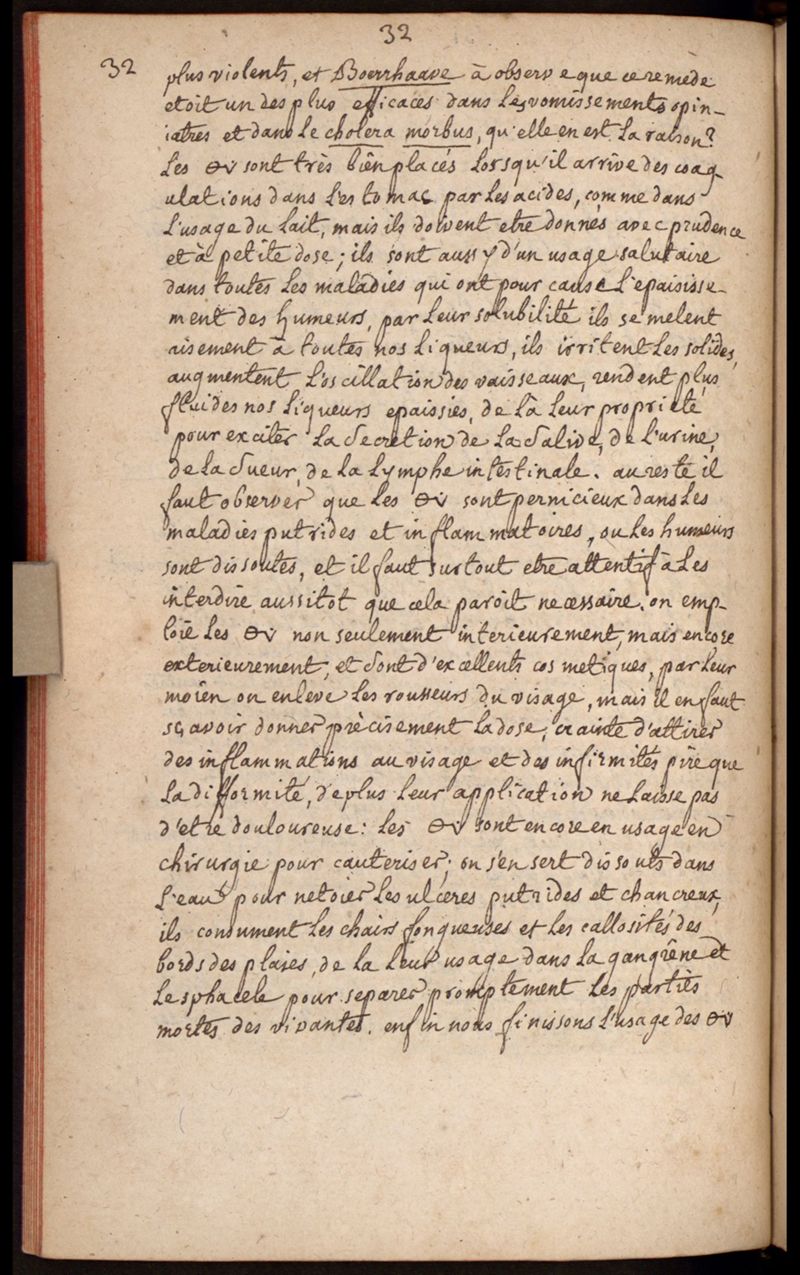 32
32
plus violents, et Boerrhaave à observe que ce remède
etoit un des plus efficaces dans les vomissements opin-
iatres et dans le cholera morbus, qu'elle en est la raison?
Les 🜔v sont très bien placés lorsqu'il arrive des coag
ulations dans l'estomac par les acides, comme dans
l'usage du lait, mais ils doivent etre donnés avec prudence
et à petite dose; ils sont aussy d'un usage salutaire
dans toutes les maladies qui ont pour cause l'epaisisse-
ment des humeurs, par leur solubilité ils se melent
aisement à toutes nos liqueurs, ils irritent les solides,
augmentent l'oscillation des vaisseaux, rendent plus
fluides nos liqueurs epaissies, de là leur proprieté
pour exciter la secretion de la salive, de l'urine,
de la sueur, de la lymphe intestinale. au reste il
faut observer que les 🜔v sont pernicieux dans les
maladies putrides et inflammatoires, ou les humeurs
sont dissoutes, et il faut surtout etre attentif à les
interdire aussitot que cela paroit necessaire. on emp-
loïe les 🜔v non seulement interieurement, mais encore
exterieurement, et sont d'excellents cosmetiques, par leur
moïen on enleve les rousseurs du visage, mais il en faut
sçavoir donner prècisement la dose, crainte d'attirer
des inflammations au visage et des infirmités pire que
la difformité, de plus leur application ne laisse pas
d'etre douloureuse: les 🜔v sont encore en usage en
chirurgie pour cauteriser; on s'en sert dissouts dans
l'eau pour netoier les ulceres putrides et chancreux,
ils consument les chairs fongueuses et les callosités des
bords des plaies, de la leur usage dans la gangrêne et
le sphacele pour separer promptement les parties
mortes des vivantes. enfin nous finissons l'usage des 🜔v